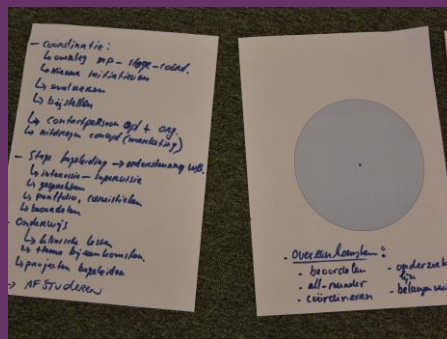 - coördinatie:
↳ overleg mp-stage-coörd.
↳ nieuwe initiatieven
↳ evalueren
↳ bijstellen
↳ contactpersoon opl + org.
↳ uitdragen concept (marketing)
- Stage begeleiding → ondersteuning
↳ intervisie - supervisie
↳ gesprekken
↳ portfolio,
↳ beoordelen
- Onderwijs
↳ klassikale lessen
↳ thema bijeenkomsten.
↳ projecten begeleiden
→ AFSTUDEREN
overeenkomsten:
- beoordelen
- all-rounder
- coördineren
- onderzoek
lijn